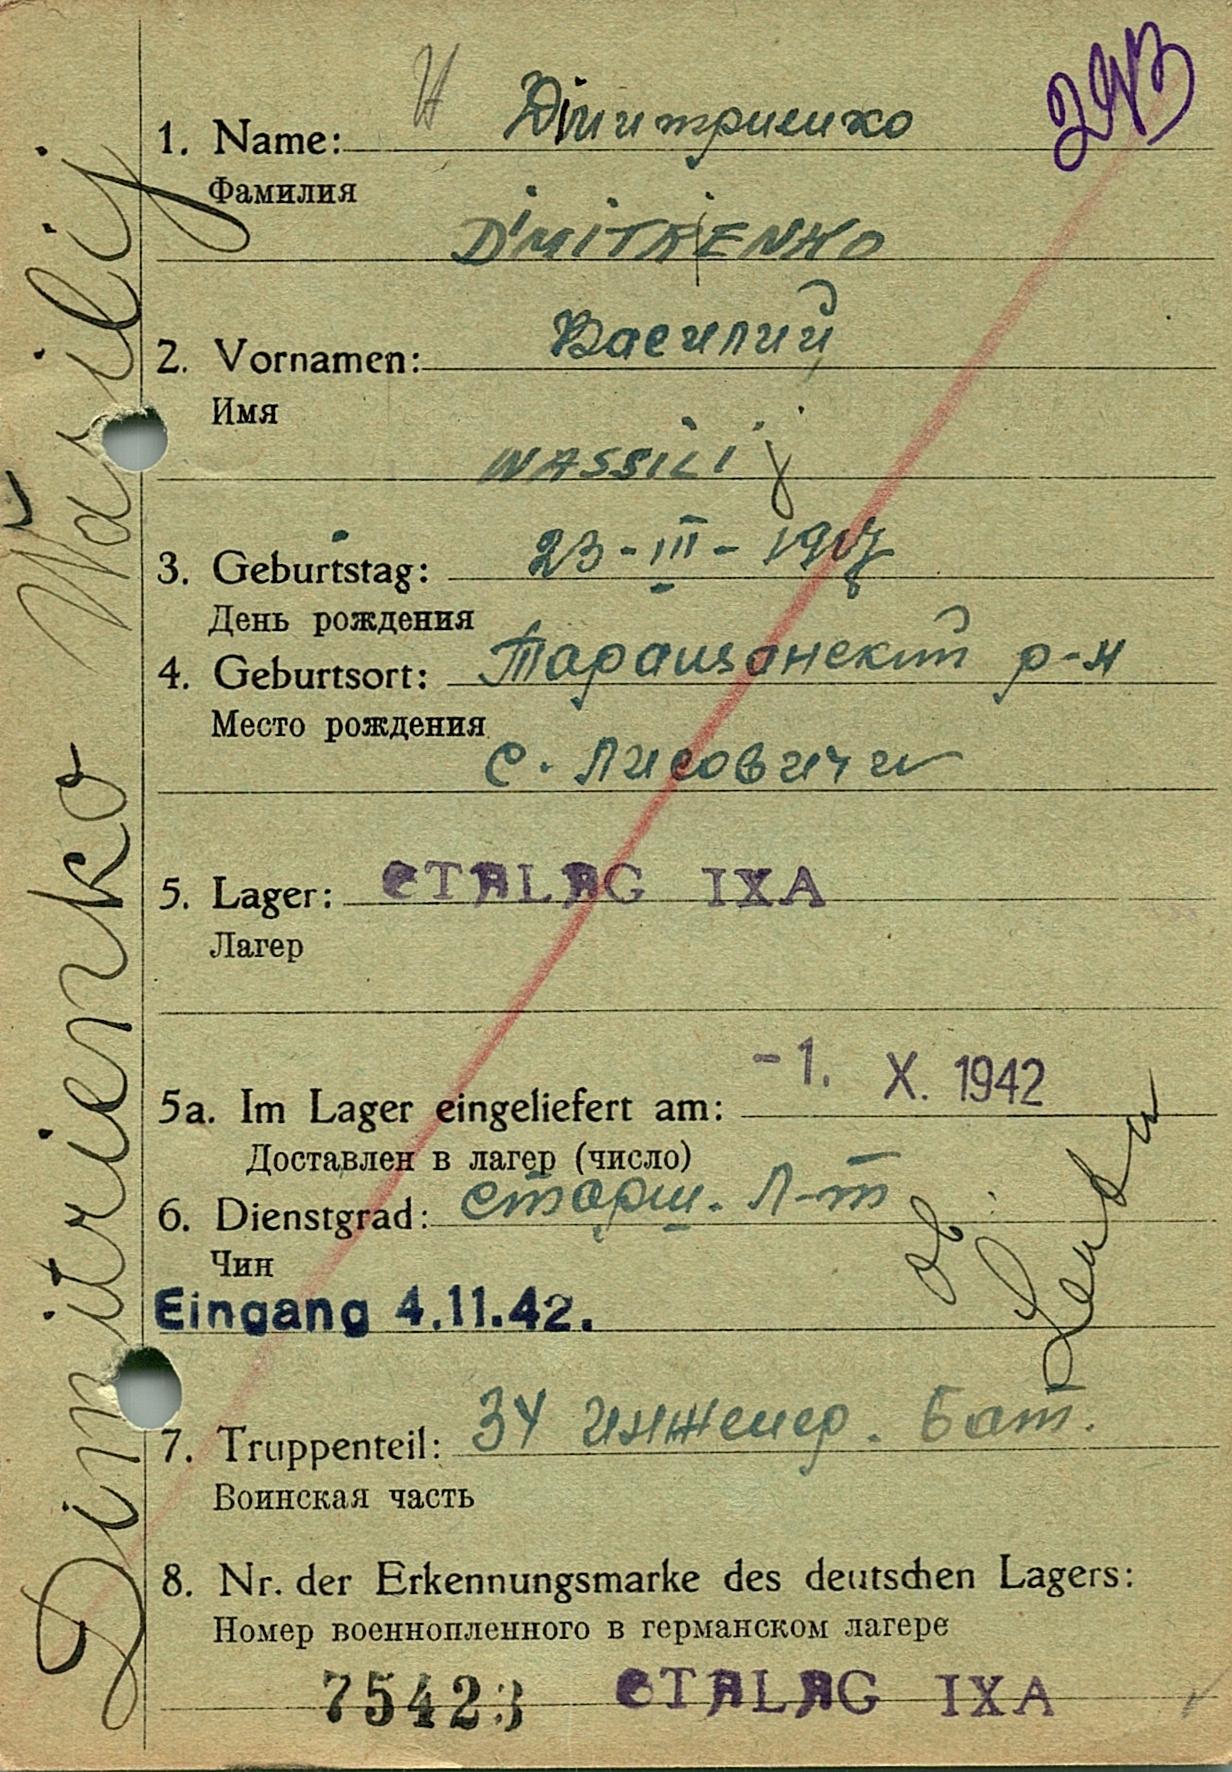 243
1. Name: Дмитриенко
Фамилия
DIMITRIENKO
2. Vornamen: Василий
Имя
WASSILIj
3. Geburtstag: 23-III-1917
День рождения
4. Geburtsort: Таращанский р-н
Место рождения
с. Лисовичи
5. Lager: STALAG IXA
Лагер
5a. Im Lager eingeliefert am: -1. X. 1942
Доставлен в лагер (число)
6. Dienstgrad: старш. л-т
Чин
Eingang 4.11.42.
7. Truppenteil: 34 инженер. бат.
Воинская часть
8. Nr. der Erkennungsmarke des deutschen Lagers:
Номер военнопленного в германском лагере
75423 STALAG IXA
Dimitrienko Wasilij